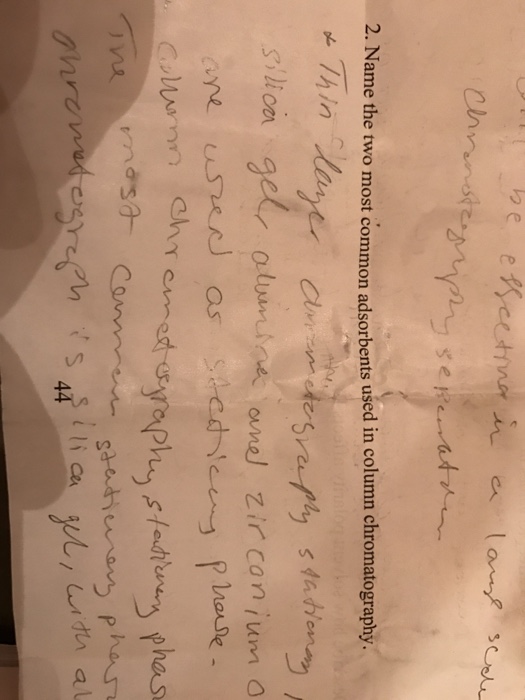 be effecting in a large scale
Chromatography separation
2. Name the two most common adsorbents used in column chromatography.
* Thin layer chromatography stationary
silica gel, alumina and zirconium
are used as stationary phase.
Column chromatography stationary phas
The most common stationary phas
chromatograph is silica gel, with al
44